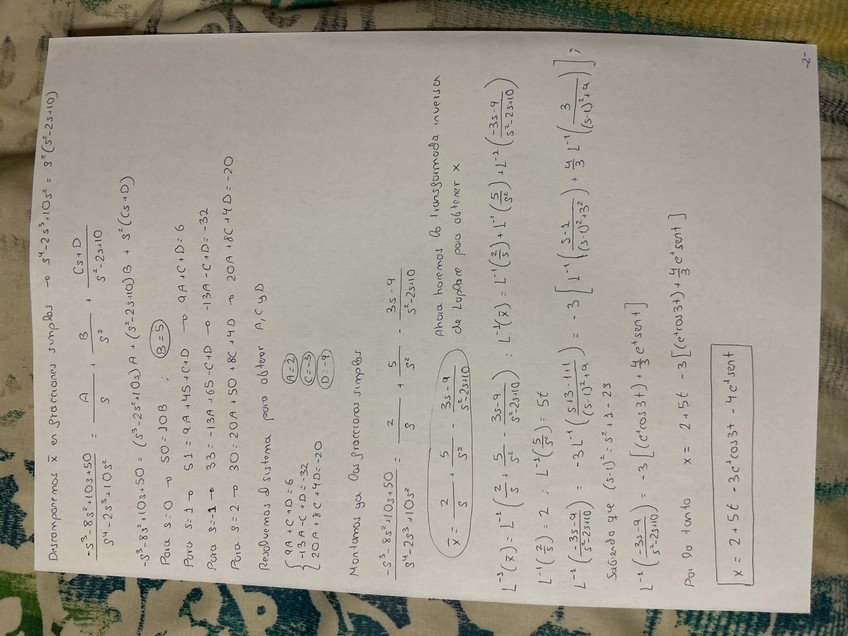 Descomponemos x̄ en fracciones simples → s⁴-2s³+10s² = s²(s²-2s+10)
(-s³-8s²+10s+50)/(s⁴-2s³+10s²) = A/s + B/s² + (Cs+D)/(s²-2s+10)
-s³-8s²+10s+50 = (s³-2s²+10s)A + (s²-2s+10)B + s²(Cs+D)
Para s=0 → 50=10B ; B=5
Para s=1 → 51 = 9A+45+C+D → 9A+C+D=6
Para s=-1 → 33 = -13A+65-C+D → -13A-C+D=-32
Para s=2 → 30 = 20A+50+8C+4D → 20A+8C+4D=-20
Resolvemos el sistema para obtener A, C y D
{ 9A+C+D=6
-13A-C+D=-32
20A+8C+4D=-20
A=2
C=-3
D=-9
Montamos ya las fracciones simples
(-s³-8s²+10s+50)/(s⁴-2s³+10s²) = 2/s + 5/s² - (3s-9)/(s²-2s+10)
x̄ = 2/s + 5/s² - (3s-9)/(s²-2s+10)
Ahora haremos la transformada inversa
de Laplace para obtener x
L⁻¹(x̄) = L⁻¹(2/s + 5/s² - (3s-9)/(s²-2s+10)) ; L⁻¹(x̄) = L⁻¹(2/s) + L⁻¹(5/s²) + L⁻¹((-3s-9)/(s²-2s+10))
L⁻¹(2/s) = 2 ; L⁻¹(5/s²) = 5t
L⁻¹((-3s-9)/(s²-2s+10)) = -3L⁻¹((s+3-1+1)/((s-1)²+9)) = -3[L⁻¹((s-1)/((s-1)²+3²)) + 4/3 L⁻¹(3/((s-1)²+9))] ;
Sabiendo que (s-1)² = s²+1-2s
L⁻¹((-3s-9)/(s²-2s+10)) = -3[(eᵗcos3t) + 4/3 eᵗsent]
Por lo tanto x = 2+5t-3[(eᵗcos3t) + 4/3 eᵗsent]
x = 2+5t-3eᵗcos3t-4eᵗsent
-2-